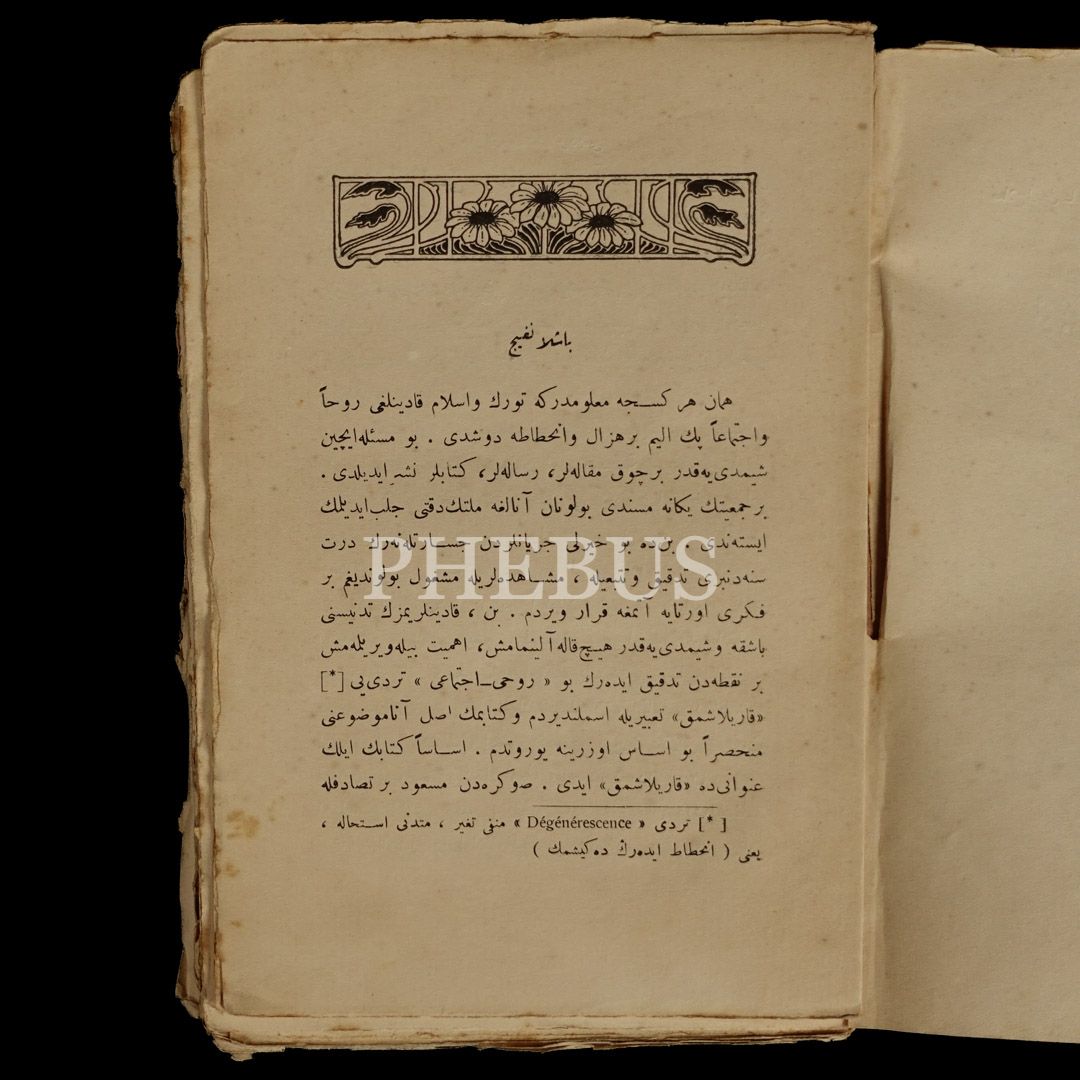 باشلانغیج
همان هر کسـجه معلومدرکه تورك واسلام قادینلغی روحاً
واجتماعاً پك الیم برهزال وانحطاطه دوشدی . بو مسئله‌ایچین
شیمدی‌یه‌قدر برچوق مقاله‌لر، رساله‌لر، کتابلر نشر ایدیلدی .
بر جمعیتك یکانه مسندی بولونان آنالغه ملتك دقتی جلب ایدیلمك
ایسته‌ندی . بن‌ده بو خیرلی جریانلردن جسـارتله‌نه‌رك درت
سنه‌دنبری تدقیق وتتبعیله ، مشـاهده‌لریله مشغول بولوندیغم بر
فـکری اورتایه آتمغه قرار ویردم . بن ، قادینلریمزك تدنیسنی
باشقه وشیمدی‌یه‌قدر هیـچ قاله آلینمامش، اهمیت بیله ویریلمه‌مش
بر نقطه‌دن تدقیق ایده‌رك بو « روحی_اجتماعی » تردی‌یی [*]
«قاریلاشمق» تعبیریله اسملندیردم وکتابمك اصل آناموضوعنی
منحصراً بو اسـاس اوزرینه یوروتدم . اسـاساً کتابك ایلك
عنوانی‌ده «قاریلاشمق» ایدی . صوکره‌دن مسعود بر تصادفله
[*] تردی « Dégénérescence » منفی تغیر ، متدنی اسـتحاله ،
یعنی ( انحطاط ایده‌رك ده‌کیشمك )
PHEBUS